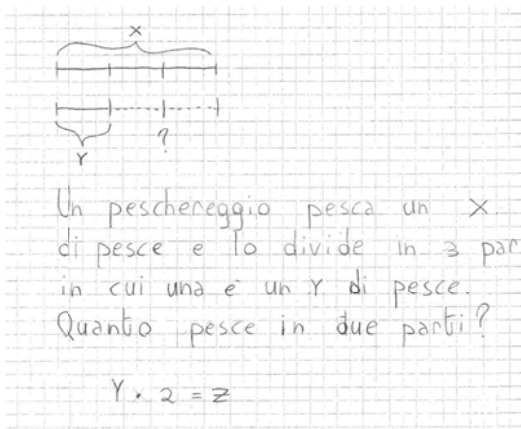 X
Y ?
Un peschereggio pesca un X
di pesce e lo divide in 3 par
in cui una e' un Y di pesce.
Quanto pesce in due parti?
Y . 2 = Z